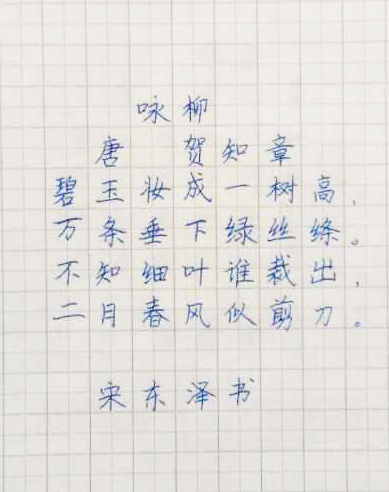 咏柳
唐 贺知章
碧玉妆成一树高，
万条垂下绿丝绦。
不知细叶谁裁出，
二月春风似剪刀。
宋东泽书